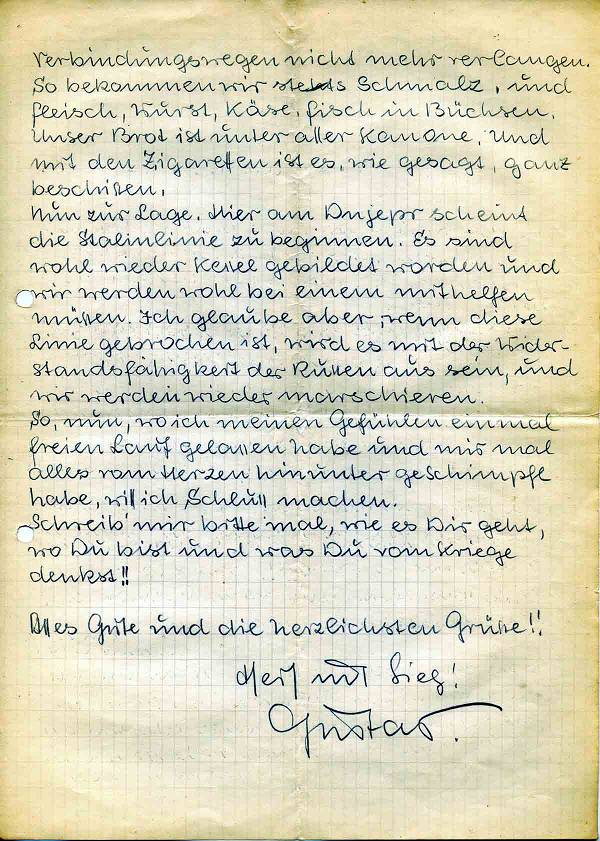 Verbindungswegen nicht mehr verlangen.
So bekommen wir stehts Schmalz, und
fleisch, Wurst, Käse, fisch in Büchsen.
Unser Brot ist unter aller Kanone. Und
mit den Zigaretten ist es, wie gesagt, ganz
beschißen.
Nun zur Lage. Hier am Dnjepr scheint
die Stalinlinie zu beginnen. Es sind
wohl wieder Keßel gebildet worden und
wir werden wohl bei einem mithelfen
müßen. Ich glaube aber, wenn diese
Linie gebrochen ist, wird es mit der Wider-
standsfähigkeit der Rußen aus sein, und
wir werden wieder marschieren.
So, nun, wo ich meinen Gefühlen einmal
freien Lauf gelaßen habe und mir mal
alles vom Herzen hinunter geschimpft
habe, will ich Schluß machen.
Schreib' mir bitte mal, wie es Dir geht,
wo Du bist und was Du vom Kriege
denkst!!
Alles Gute und die herzlichsten Grüße!!
Heil und Sieg!
Gustav.